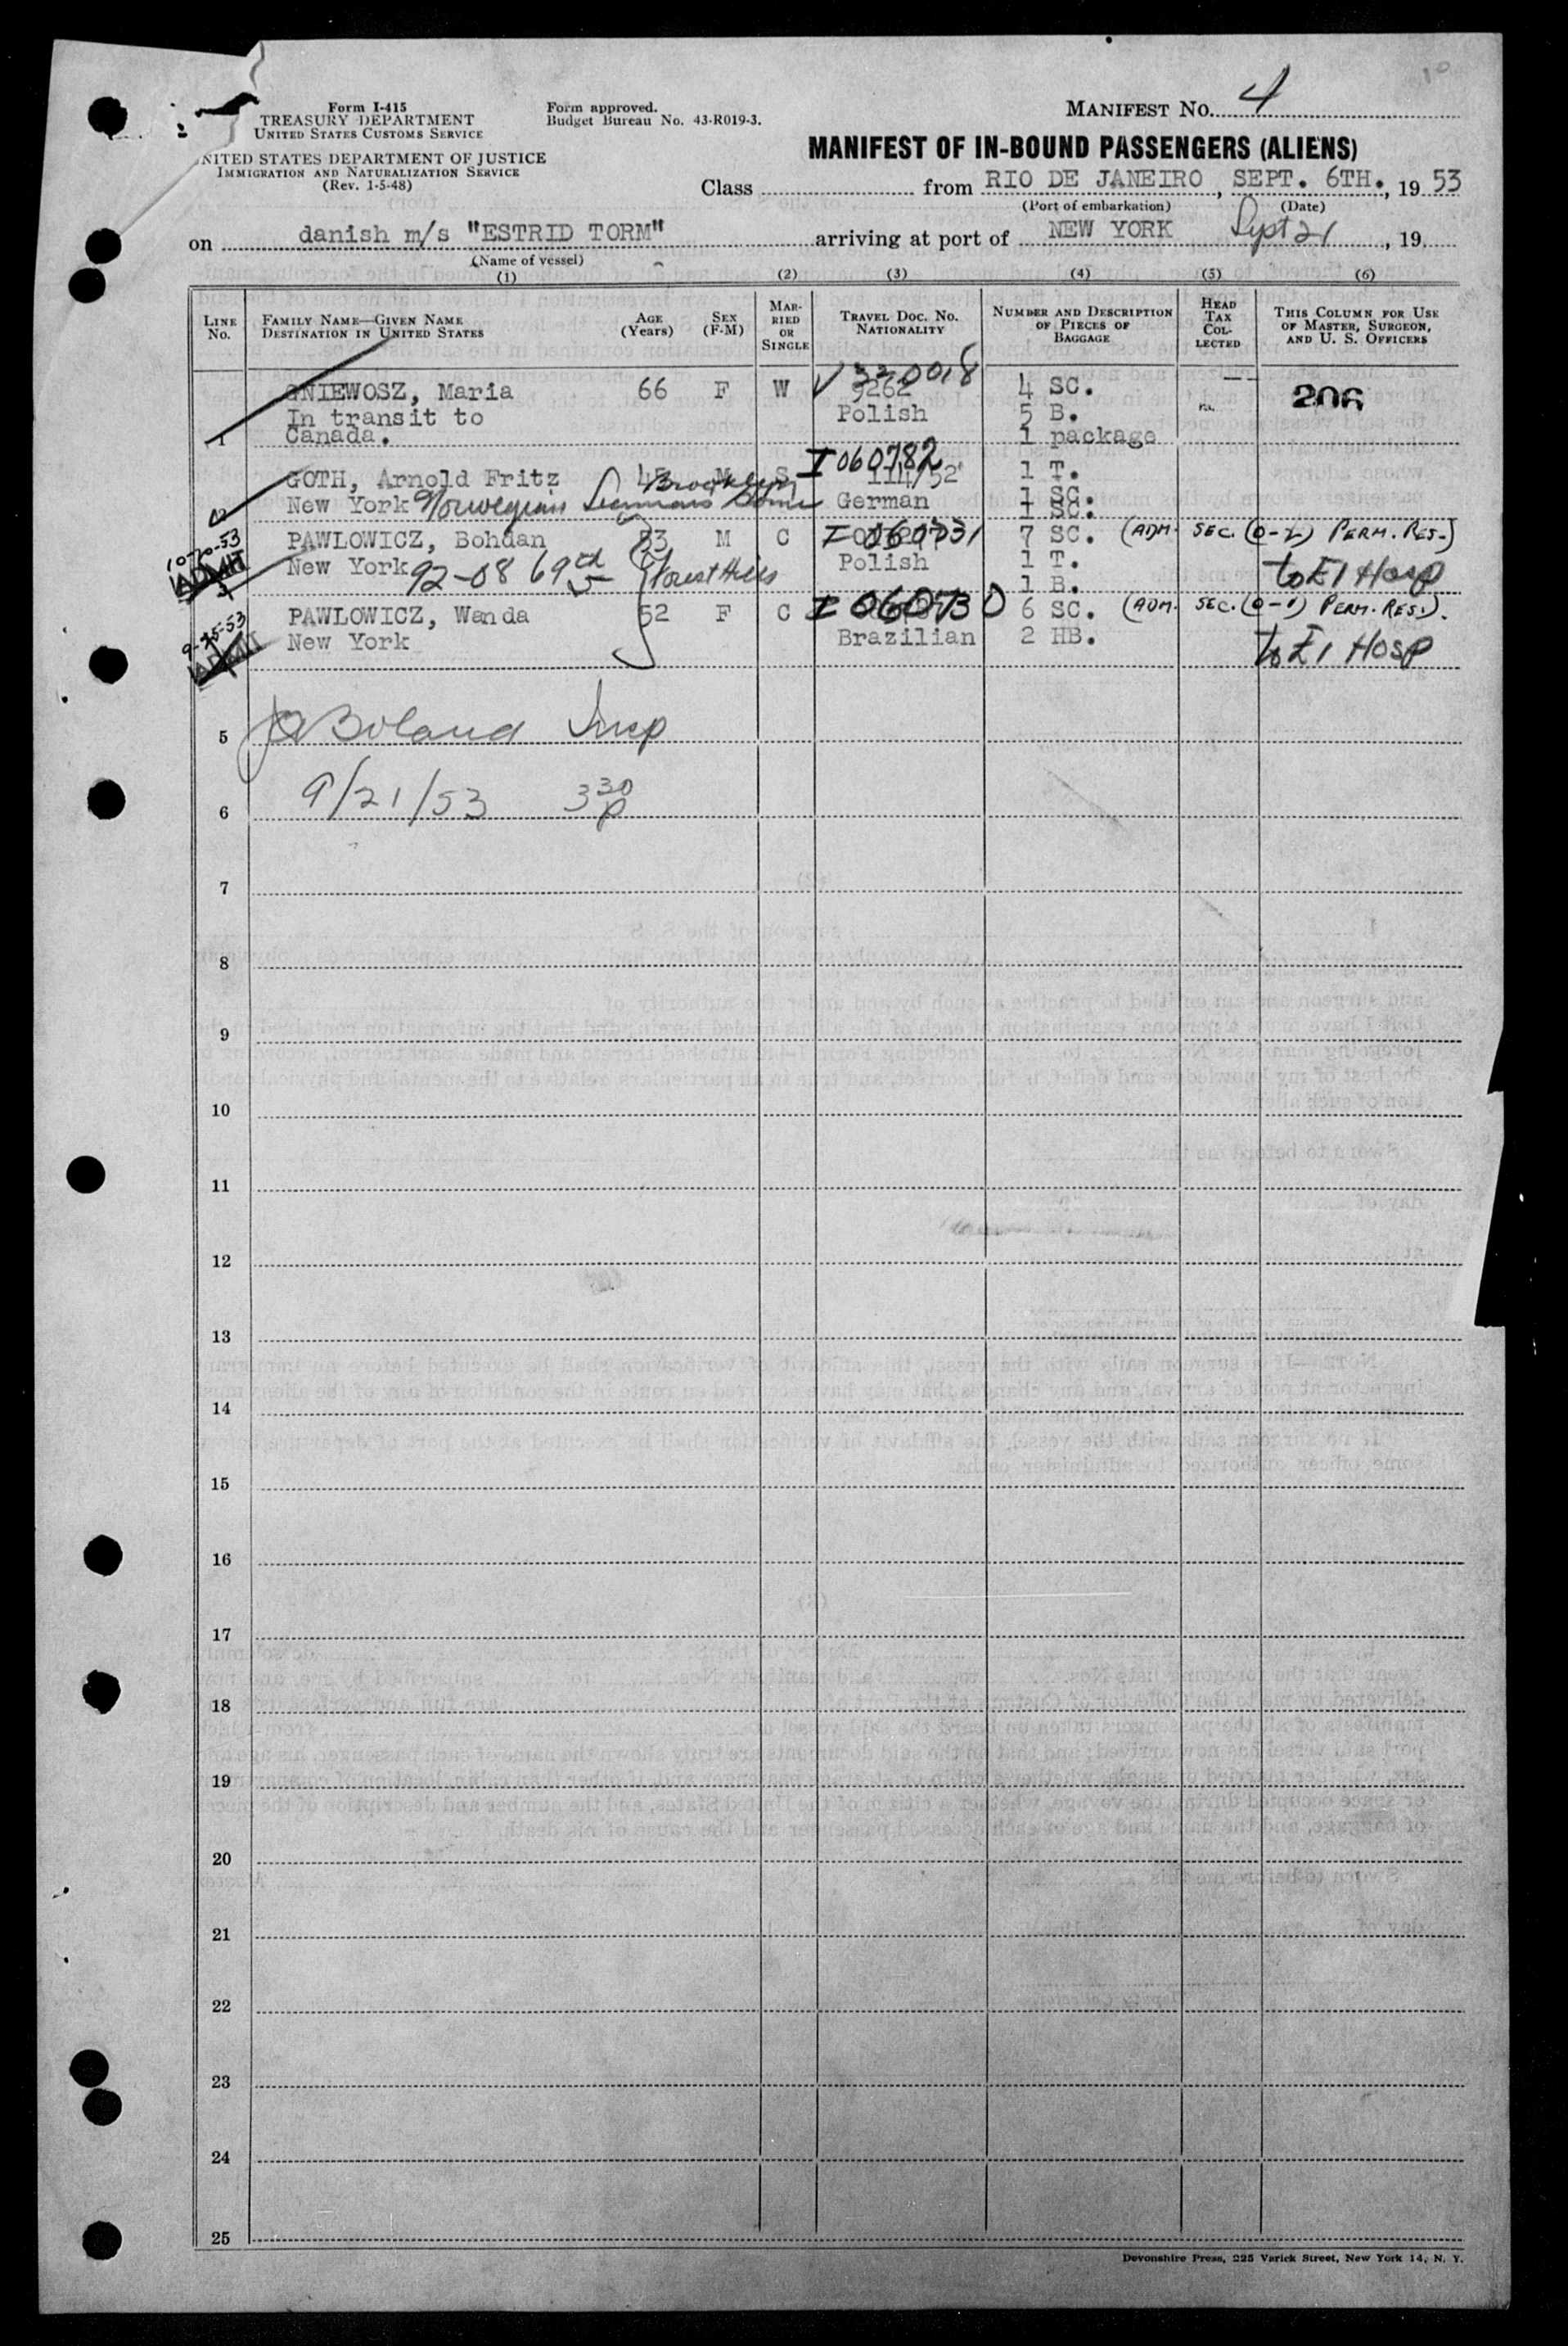 Form I-415
TREASURY DEPARTMENT
UNITED STATES CUSTOMS SERVICE
NITED STATES DEPARTMENT OF JUSTICE
IMMIGRATION AND NATURALIZATION SERVICE
(Rev. 1-5-48)
Form approved.
Budget Bureau No. 43-R019-3.
MANIFEST NO. 4
MANIFEST OF IN-BOUND PASSENGERS (ALIENS)
Class from RIO DE JANEIRO, SEPT. 6TH., 19 53
(Port of embarkation) (Date)
on danish m/s "ESTRID TORM" arriving at port of NEW YORK Sept 21, 19
(Name of vessel)
(1) (2) (3) (4) (5) (6)
LINE No. FAMILY NAME—GIVEN NAME DESTINATION IN UNITED STATES AGE (Years) SEX (F-M) MARRIED OR SINGLE TRAVEL DOC. NO. NATIONALITY NUMBER AND DESCRIPTION OF PIECES OF BAGGAGE HEAD TAX COLLECTED THIS COLUMN FOR USE OF MASTER, SURGEON, AND U. S. OFFICERS
V 330018
GNIEWOSZ, Maria 66 F W 9262 4 SC. — 206
In transit to Polish 5 B.
1 Canada. 1 package
I 060782
GOTH, Arnold Fritz 45 M S 114/52 1 T.
Brooklyn
New York Norwegian Seamans Home German 1 SC.
1 SC.
10-20-53 PAWLOWICZ, Bohdan 53 M C I-060731 7 SC. (ADM. SEC. (0-2) PERM. RES.)
ADMIT New York 92-08 69th Forest Hills Polish 1 T. to EI Hosp
1 B.
9-25-53 PAWLOWICZ, Wanda 52 F C I 060730 6 SC. (ADM. SEC. (0-1) PERM. RES.).
ADMIT New York Brazilian 2 HB. to EI Hosp
5 Boland Insp
6 9/21/53 3 30 p
7
8
9
10
11
12
13
14
15
16
17
18
19
20
21
22
23
24
25
Devonshire Press, 225 Varick Street, New York 14, N. Y.